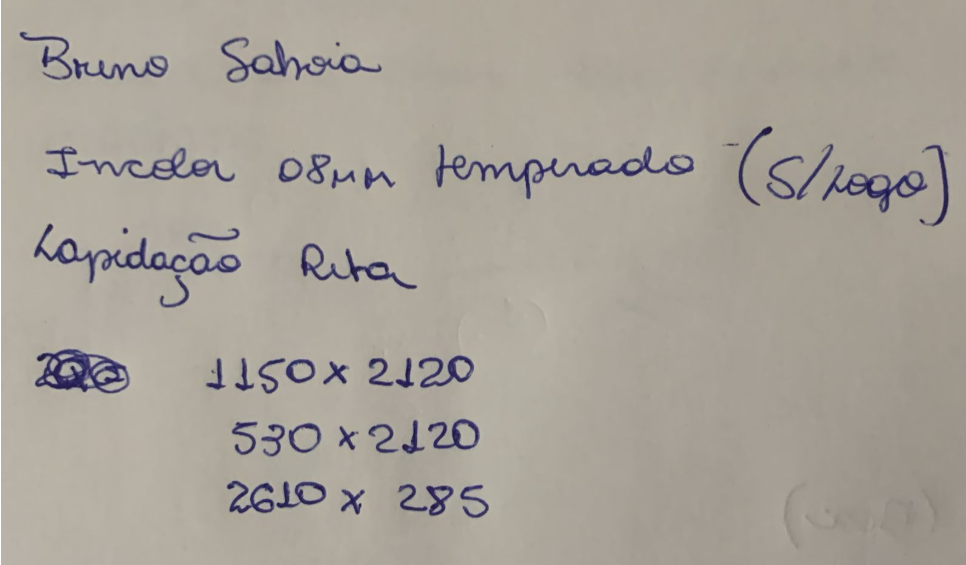 Bruno Saboia
Incolor 08mm temperado (S/Logo)
Lapidação Reta
1150 x 2120
530 x 2120
2610 x 285